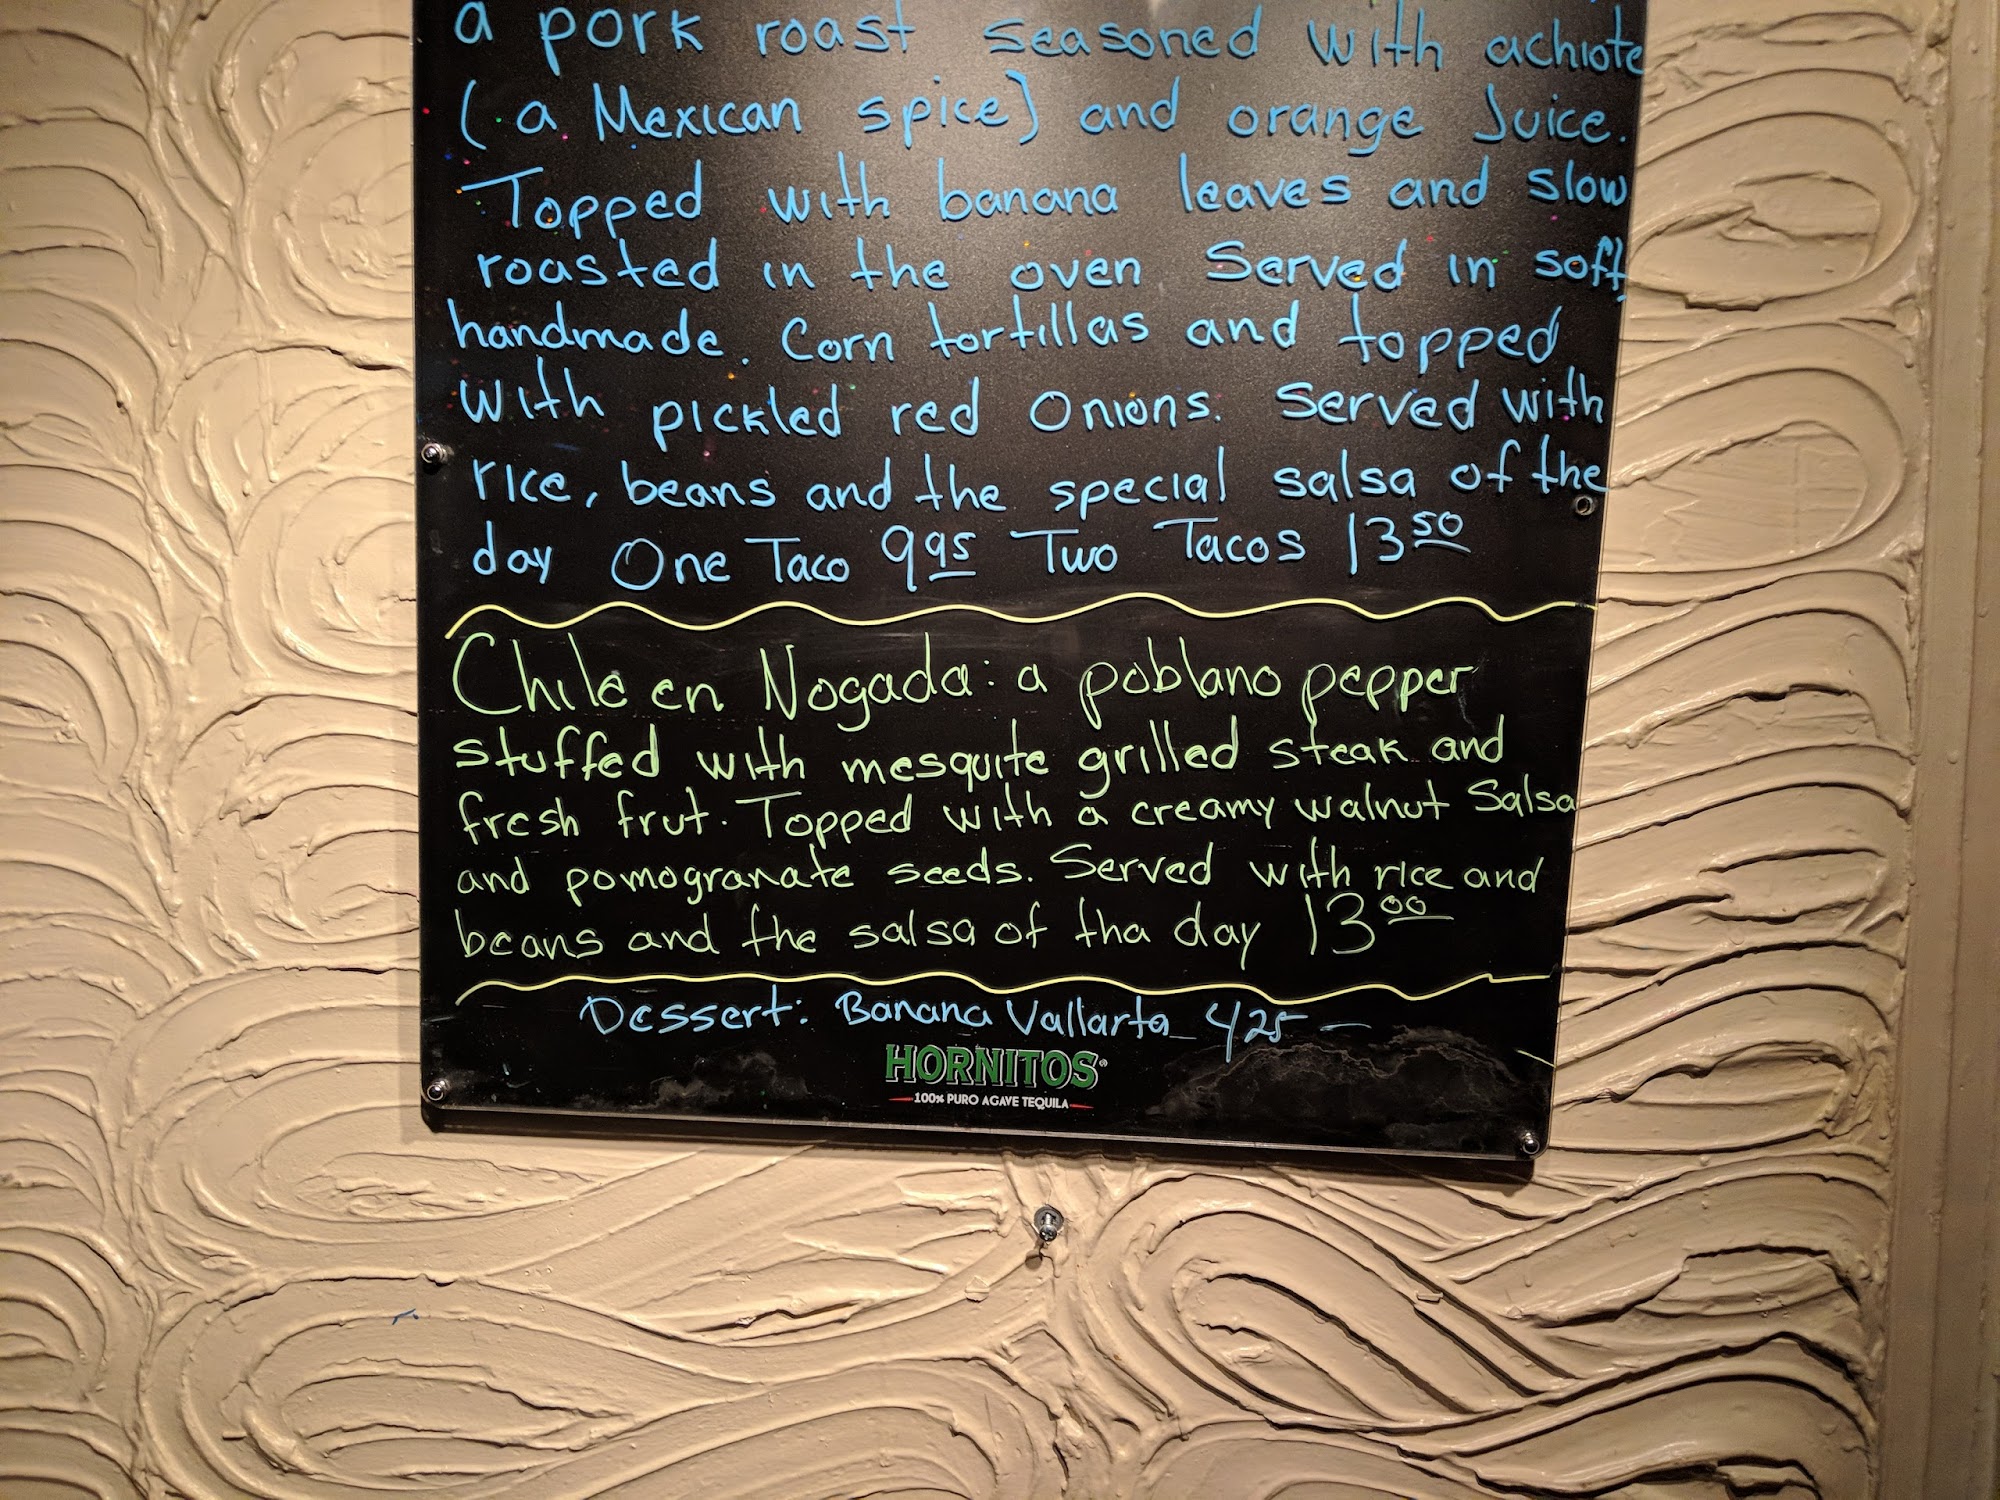 a pork roast seasoned with achiote
(a Mexican spice) and orange Juice.
Topped with banana leaves and slow
roasted in the oven Served in soft
handmade. Corn tortillas and topped
with pickled red Onions. Served with
rice, beans and the special salsa of the
day One Taco 9 95 Two Tacos 13 50
Chile en Nogada: a poblano pepper
stuffed with mesquite grilled steak and
fresh frut. Topped with a creamy walnut Salsa
and pomogranate seeds. Served with rice and
beans and the salsa of tha day 13 00
Dessert: Banana Vallarta 4 25
HORNITOS®
100% PURO AGAVE TEQUILA